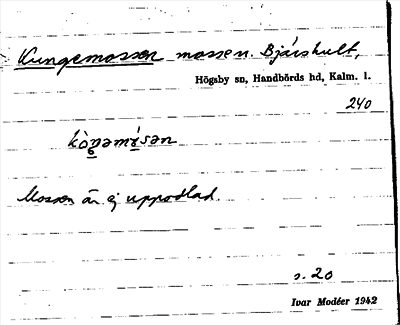 Kungemossen mossen. Bjärshult,
Högsby sn, Handbörds hd, Kalm. l.
240
Mossen är ej uppodlad.
s. 20
Ivar Modéer 1942